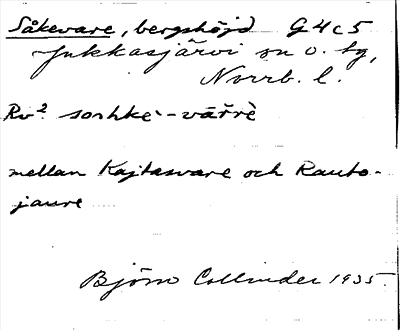 Såkevare, bergshöjd G4c5
Jukkasjärvi sn o. tg,
Norrb. l.
Rv² soshke-vāřrè
mellan Kajtasvare och Rauto-
jaure
Björn Collinder 1935